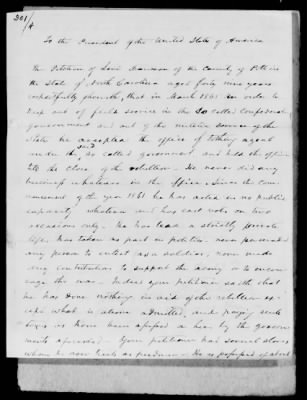 To the President of the United States of America
The Petition of Levi Dawson of the County of Pitt in
the State of North Carolina aged forty nine years
respectfully sheweth, that in March 1865 in order to
keep out of field service in the So called Confederate
government and out of the militia service of the
State he accepted the office of tithing agent
under the said so called government and held the office
till the close of the rebellion - He never did any
business whatever in the office. Since the com-
mencement of the year 1861 he has acted in no public
capacity whatever and has cast vote on two
occasions only. He has lead a strictly private
life, has taken no part in politics, never persuaded
any person to enlist as a soldier, never made
any contribution to support the army or to encou-
rage the war. Indeed your petitioner saith that
he has done nothing in aid of the rebellion ex-
cept what is above admitted, and paying such
taxes as have been assessed on him by the govern-
ments aforesaid. Your petitioner had several slaves
whom he now treats as freedmen. He is possessed of about